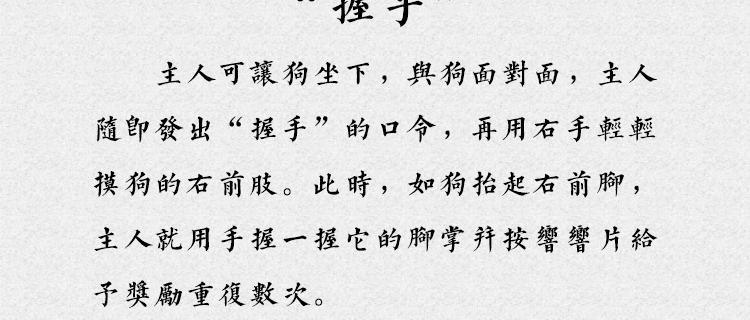 “握手”
主人可讓狗坐下，與狗面對面，主人
隨即發出“握手”的口令，再用右手輕輕
摸狗的右前肢。此時，如狗抬起右前腳，
主人就用手握一握它的腳掌并按響響片給
予獎勵重復數次。